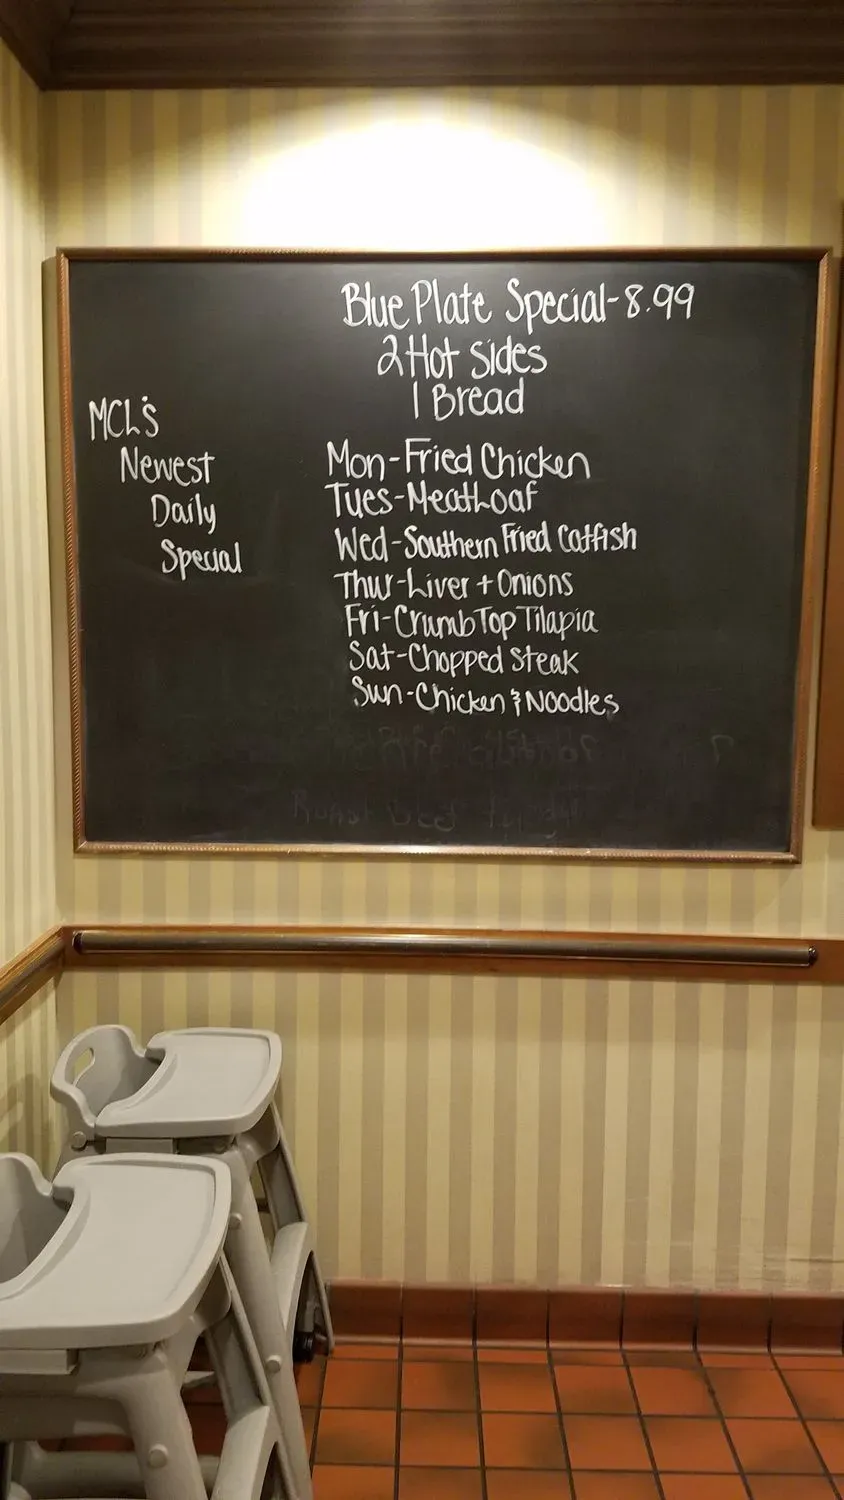 Blue Plate Special-8.99
2 Hot Sides
1 Bread
MCL's
Newest
Daily
Special
Mon-Fried Chicken
Tues-MeatLoaf
Wed-Southern Fried Catfish
Thur-Liver + Onions
Fri-Crumb Top Tilapia
Sat-Chopped Steak
Sun-Chicken & Noodles